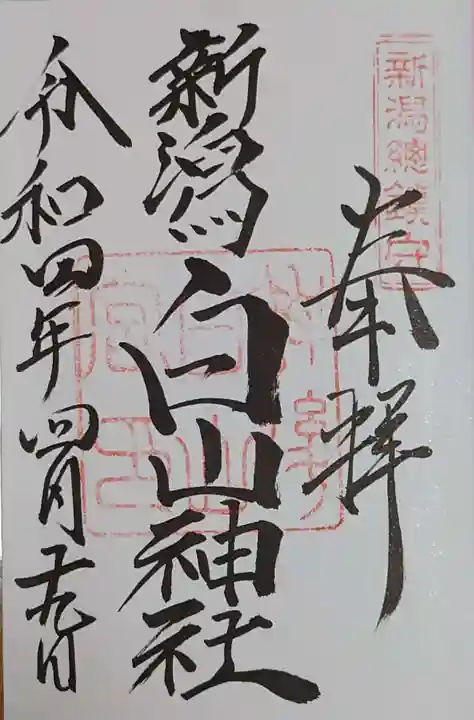 新潟總鎮守
奉拝
新潟白山神社
令和四年四月十九日